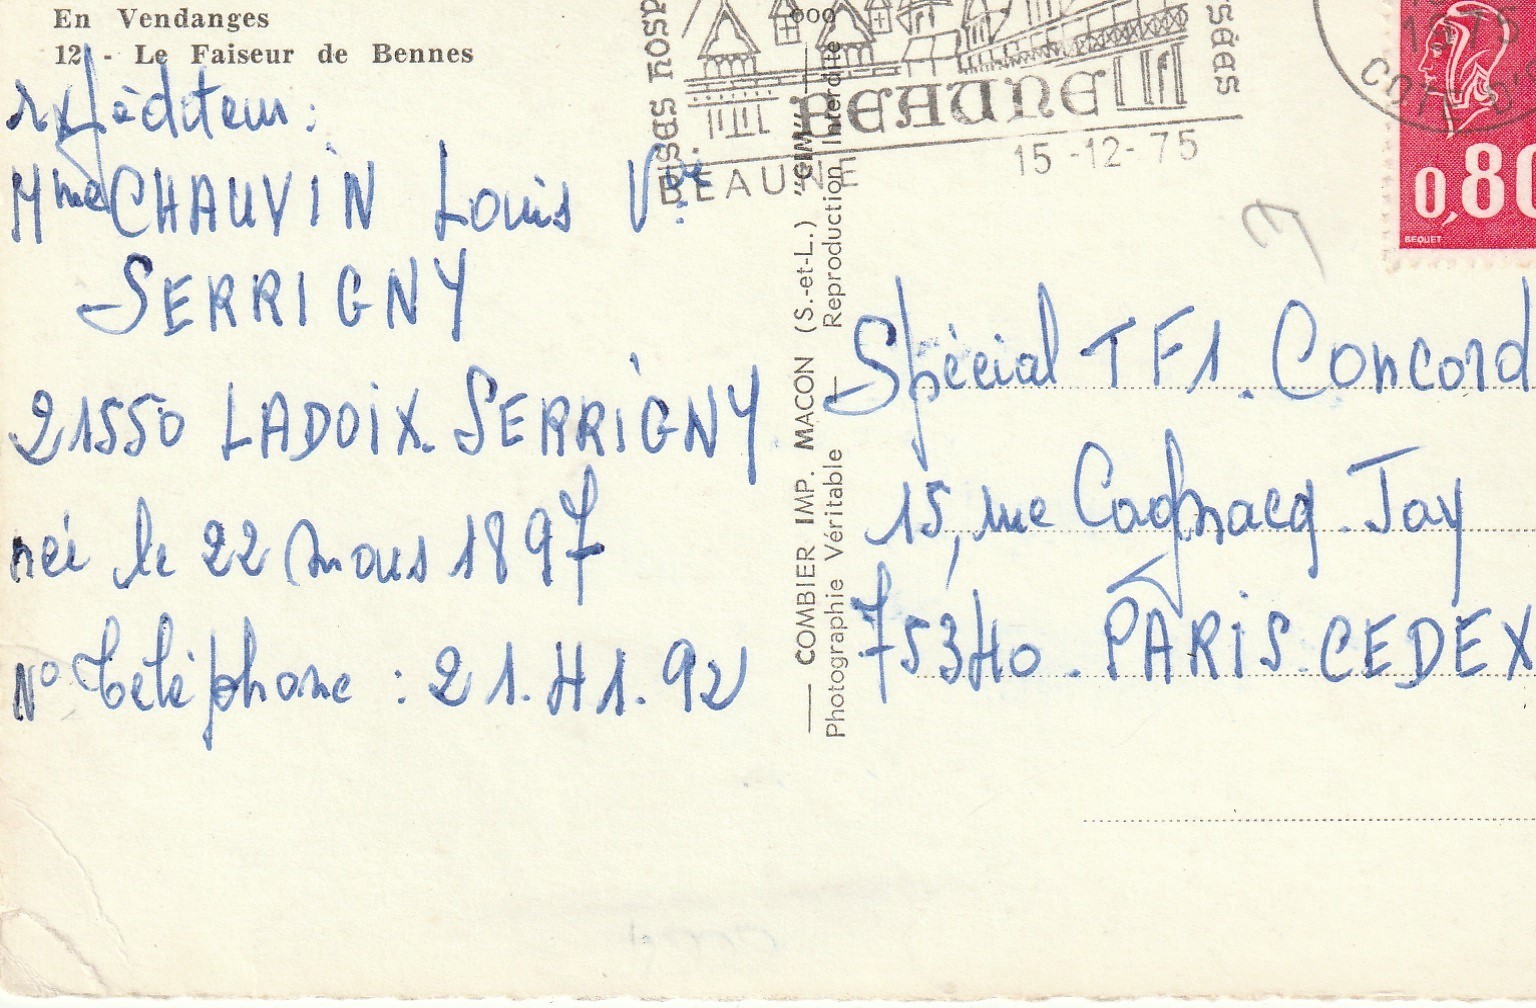 En Vendanges
12 - Le Faiseur de Bennes
expéditeur :
Mme CHAUVIN Louis Vve
SERRIGNY
21550 LADOIX. SERRIGNY
née le 22 mars 1897
N° téléphone : 21.41.92
BEAUNE
BEAUNE
15-12-75
1975
COTE D'O
0,80
BEQUET
COMBIER IMP. MACON (S.-et-L.) "CIM"
Photographie Véritable — Reproduction Interdite
Spécial TF1. Concord
15, rue Cognacq. Jay
75340. PARIS. CEDEX